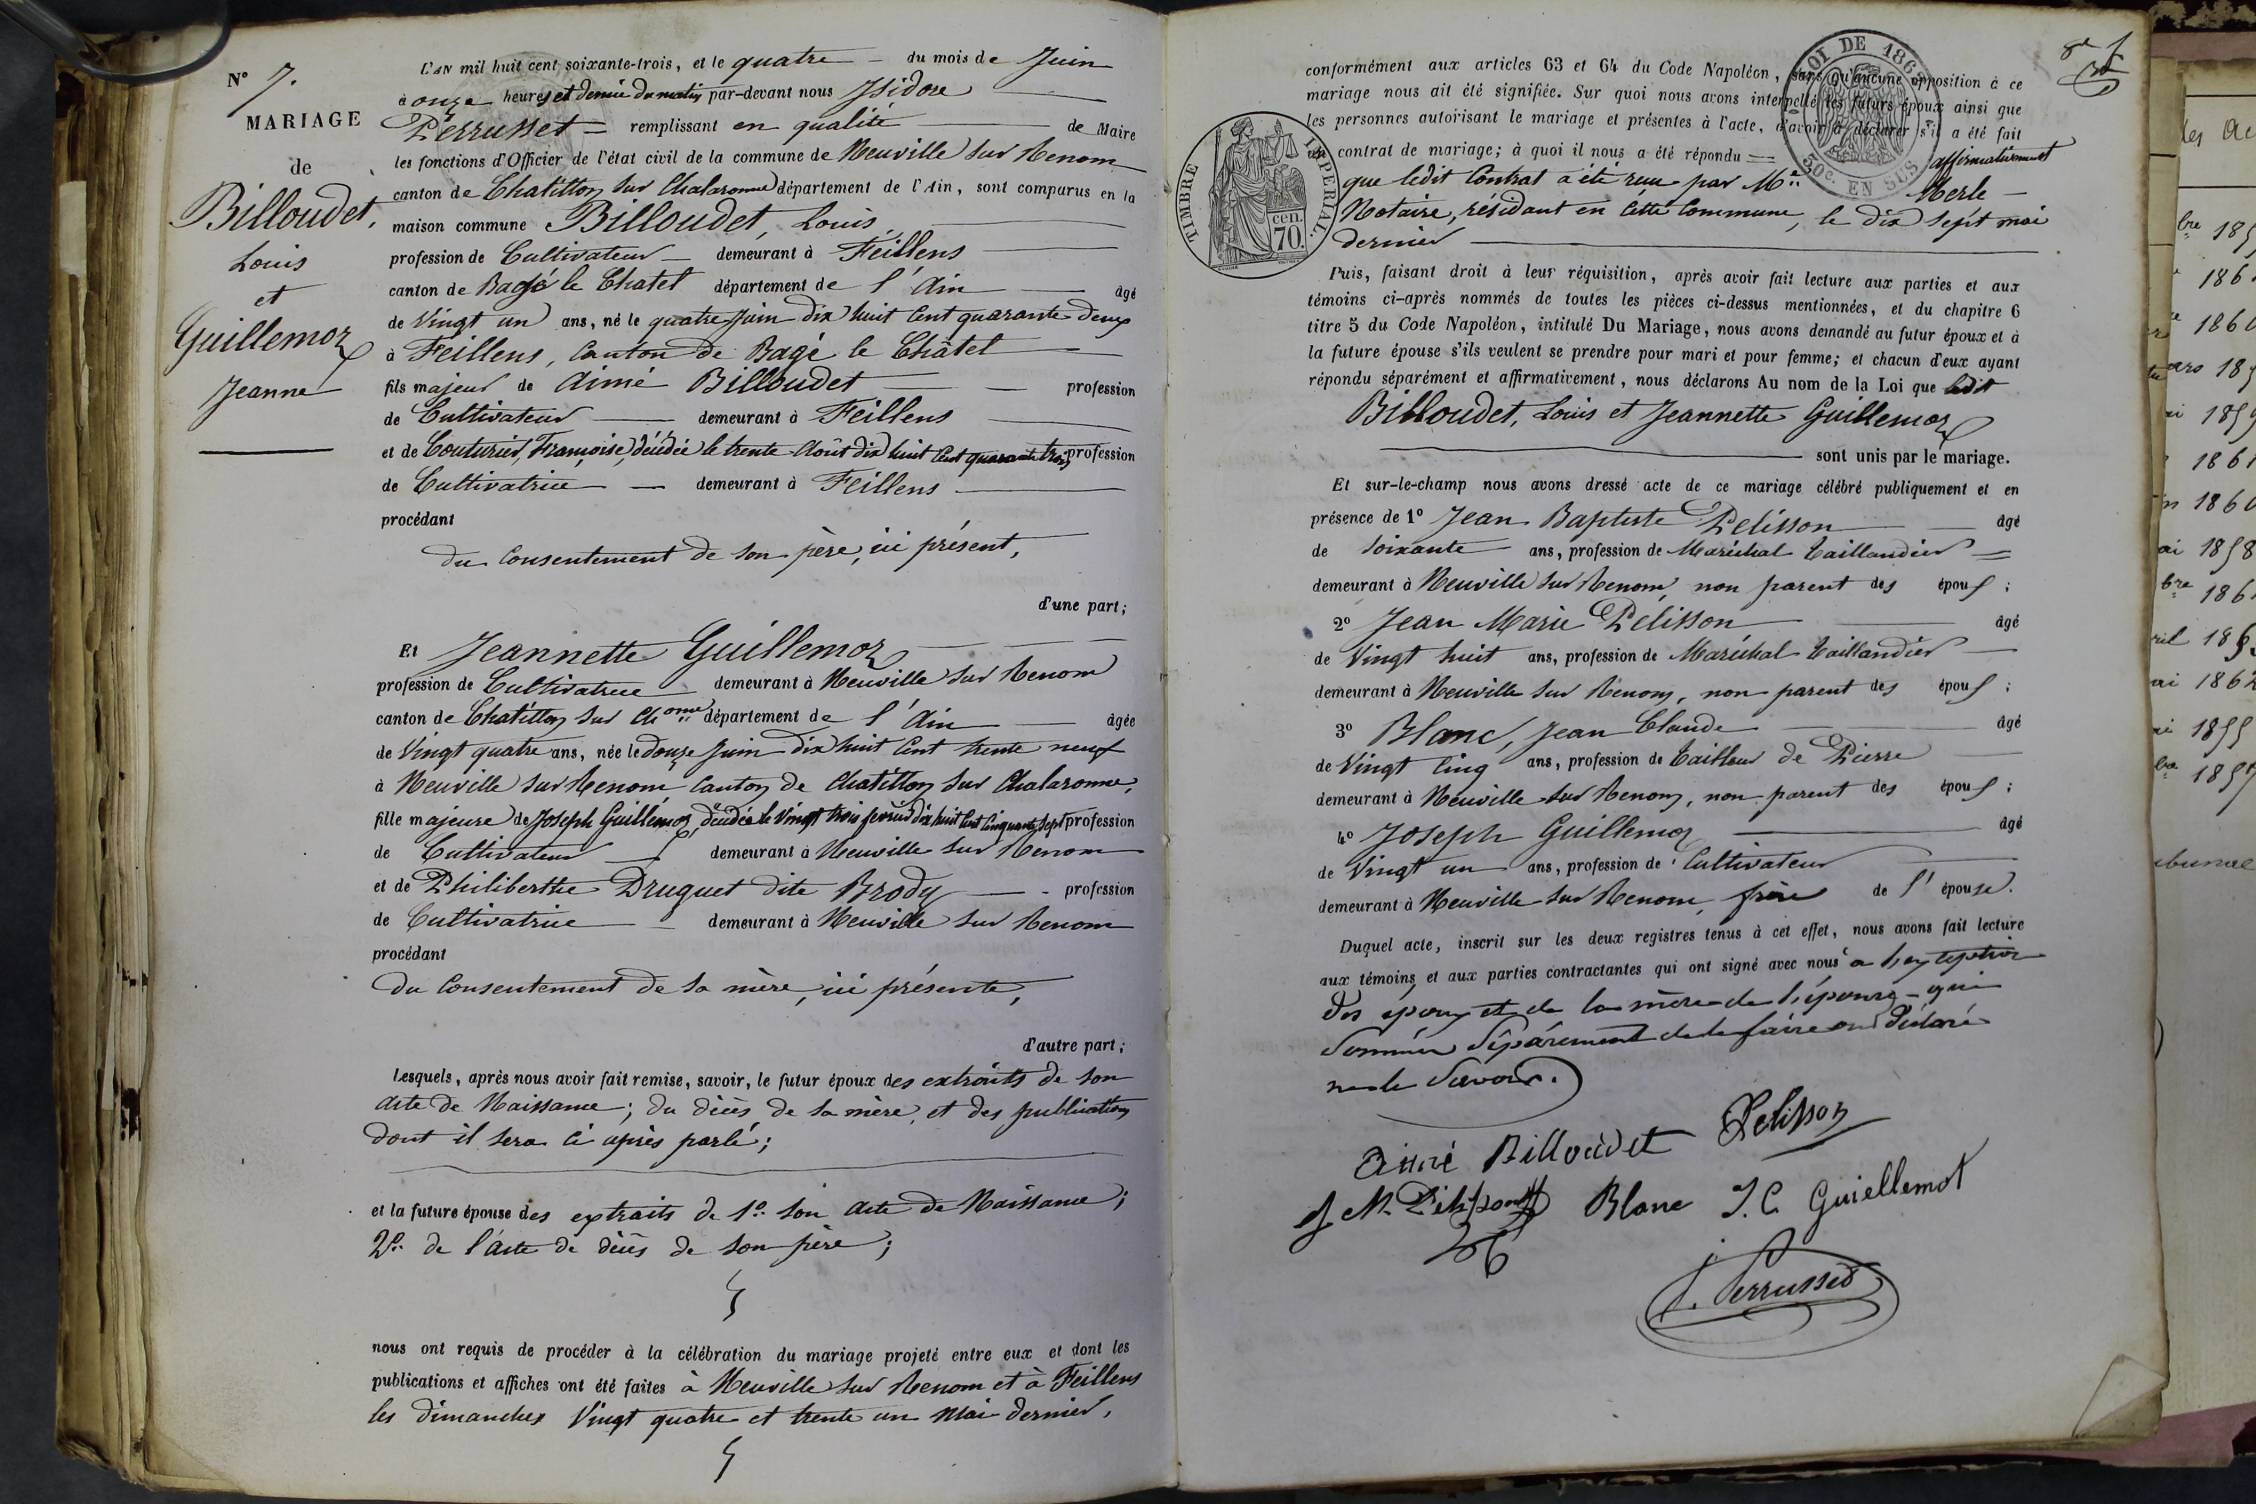 N° 7.
MARIAGE
de
Billoudet,
Louis
et
Guillemoz
Jeanne
L'AN mil huit cent soixante-trois, et le quatre du mois de Juin
à onze heures et demie du matin par-devant nous Isidore
Perrusset remplissant en qualité de Maire
les fonctions d'Officier de l'état civil de la commune de Neuville sur Renom
canton de Chatillon sur Chalaronne département de l'Ain, sont comparus en la
maison commune Billoudet, Louis,
profession de Cultivateur demeurant à Feillens
canton de Bagé le Chatel département de l'Ain âgé
de Vingt un ans, né le quatre Juin dix huit Cent quarante deux
à Feillens, Canton de Bagé le Châtel
fils majeur de Aimé Billoudet profession
de Cultivateur demeurant à Feillens
et de Couturier, Françoise, décédée le trente Août dix huit Cent quarante trois profession
de Cultivatrice demeurant à Feillens
procédant
du Consentement de son père, ici présent,
d'une part;
Et Jeannette Guillemoz
profession de Cultivatrice demeurant à Neuville sur Renom
canton de Chatillon sur Ch.onne département de l'Ain âgée
de Vingt quatre ans, née le douze Juin dix huit Cent trente neuf
à Neuville sur Renom Canton de Chatillon sur Chalaronne,
fille majeure de Joseph Guillemoz, décédé le Vingt trois février dix huit Cent Cinquante Sept profession
de Cultivateur demeurant à Neuville sur Renom
et de Philiberthe Druguet dite Brody profession
de Cultivatrice demeurant à Neuville sur Renom
procédant
du Consentement de sa mère, ici présente,
d'autre part;
Lesquels, après nous avoir fait remise, savoir, le futur époux des extraits de son
acte de Naissance; du décès de sa mère, et des publications
dont il sera ci après parlé;
et la future épouse des extraits de 1° son Acte de Naissance;
2° de l'Acte de décès de son père;
nous ont requis de procéder à la célébration du mariage projeté entre eux et dont les
publications et affiches ont été faites à Neuville sur Renom et à Feillens
les dimanches Vingt quatre et trente un Mai dernier,
conformément aux articles 63 et 64 du Code Napoléon, sans qu'aucune opposition à ce
mariage nous ait été signifiée. Sur quoi nous avons interpellé les futurs époux ainsi que
les personnes autorisant le mariage et présentes à l'acte, d'avoir à déclarer s'il a été fait
un contrat de mariage; à quoi il nous a été répondu affirmativement
que ledit Contrat a été reçu par Me Merle
Notaire, résidant en Cette Commune, le dix sept mai
dernier
Puis, faisant droit à leur réquisition, après avoir fait lecture aux parties et aux
témoins ci-après nommés de toutes les pièces ci-dessus mentionnées, et du chapitre 6
titre 5 du Code Napoléon, intitulé Du Mariage, nous avons demandé au futur époux et à
la future épouse s'ils veulent se prendre pour mari et pour femme; et chacun d'eux ayant
répondu séparément et affirmativement, nous déclarons Au nom de la Loi que ledit
Billoudet, Louis et Jeannette Guillemoz
sont unis par le mariage.
Et sur-le-champ nous avons dressé acte de ce mariage célébré publiquement et en
présence de 1° Jean Baptiste Pelisson âgé
de soixante ans, profession de Maréchal taillandier
demeurant à Neuville sur Renom, non parent des époux;
2° Jean Marie Pelisson âgé
de Vingt huit ans, profession de Maréchal taillandier
demeurant à Neuville sur Renom, non parent des époux;
3° Blanc, Jean Claude âgé
de Vingt Cinq ans, profession de tailleur de Pierre
demeurant à Neuville sur Renom, non parent des époux;
4° Joseph Guillemoz âgé
de Vingt un ans, profession de Cultivateur
demeurant à Neuville sur Renom, frère de l'épouse.
Duquel acte, inscrit sur les deux registres tenus à cet effet, nous avons fait lecture
aux témoins et aux parties contractantes qui ont signé avec nous à l'exception
des époux et de la mère de l'épouse qui
sommés séparément de le faire ont déclaré
ne le savoir.
Aimé Billoudet Pelisson
J M. Pelisson Blanc J. C. Guiellemot
I. Perrusset
TIMBRE IMPERIAL
cen.
70.
LOI DE 1862
50c. EN SUS
8e f
les
bre 185
186
1860
ars 18
ai 1859
1861
n 1860
ai 1858
bre 186
ril 185
ai 1862
ai 1855
bre 1857
ibunal